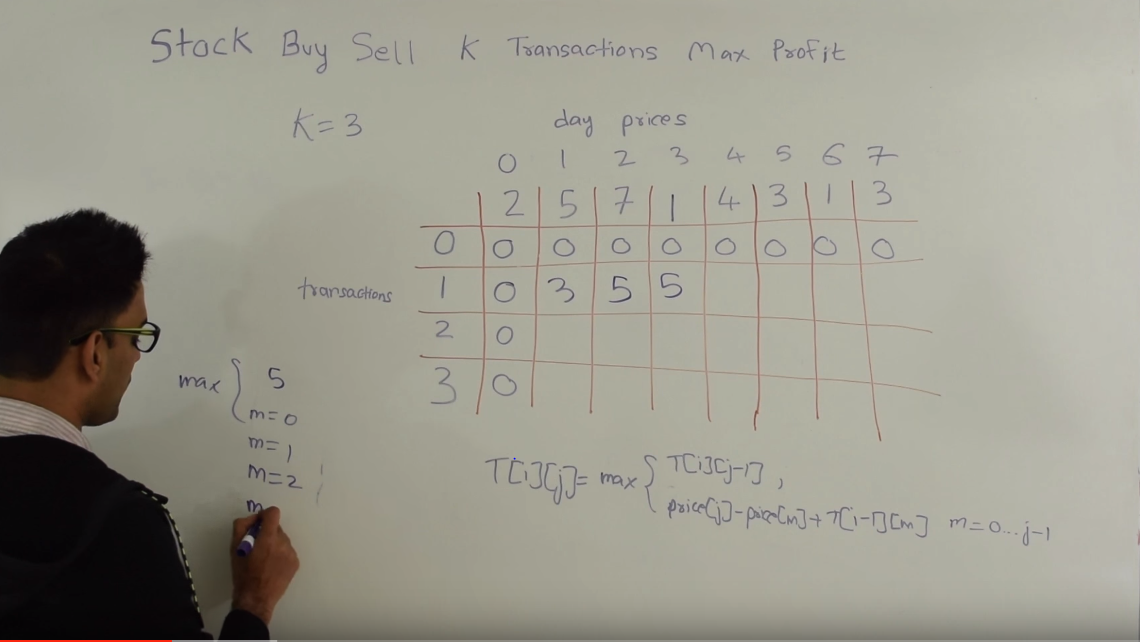 Stock Buy Sell K Transactions Max Profit
K=3
day prices
0 1 2 3 4 5 6 7
2 5 7 1 4 3 1 3
0 0 0 0 0 0 0 0 0
transactions 1 0 3 5 5
2 0
3 0
max { 5
m=0
m=1
m=2
m
T[i][j]= max { T[i][j-1] ,
price[j]-price[m]+T[i-1][m] m=0...j-1